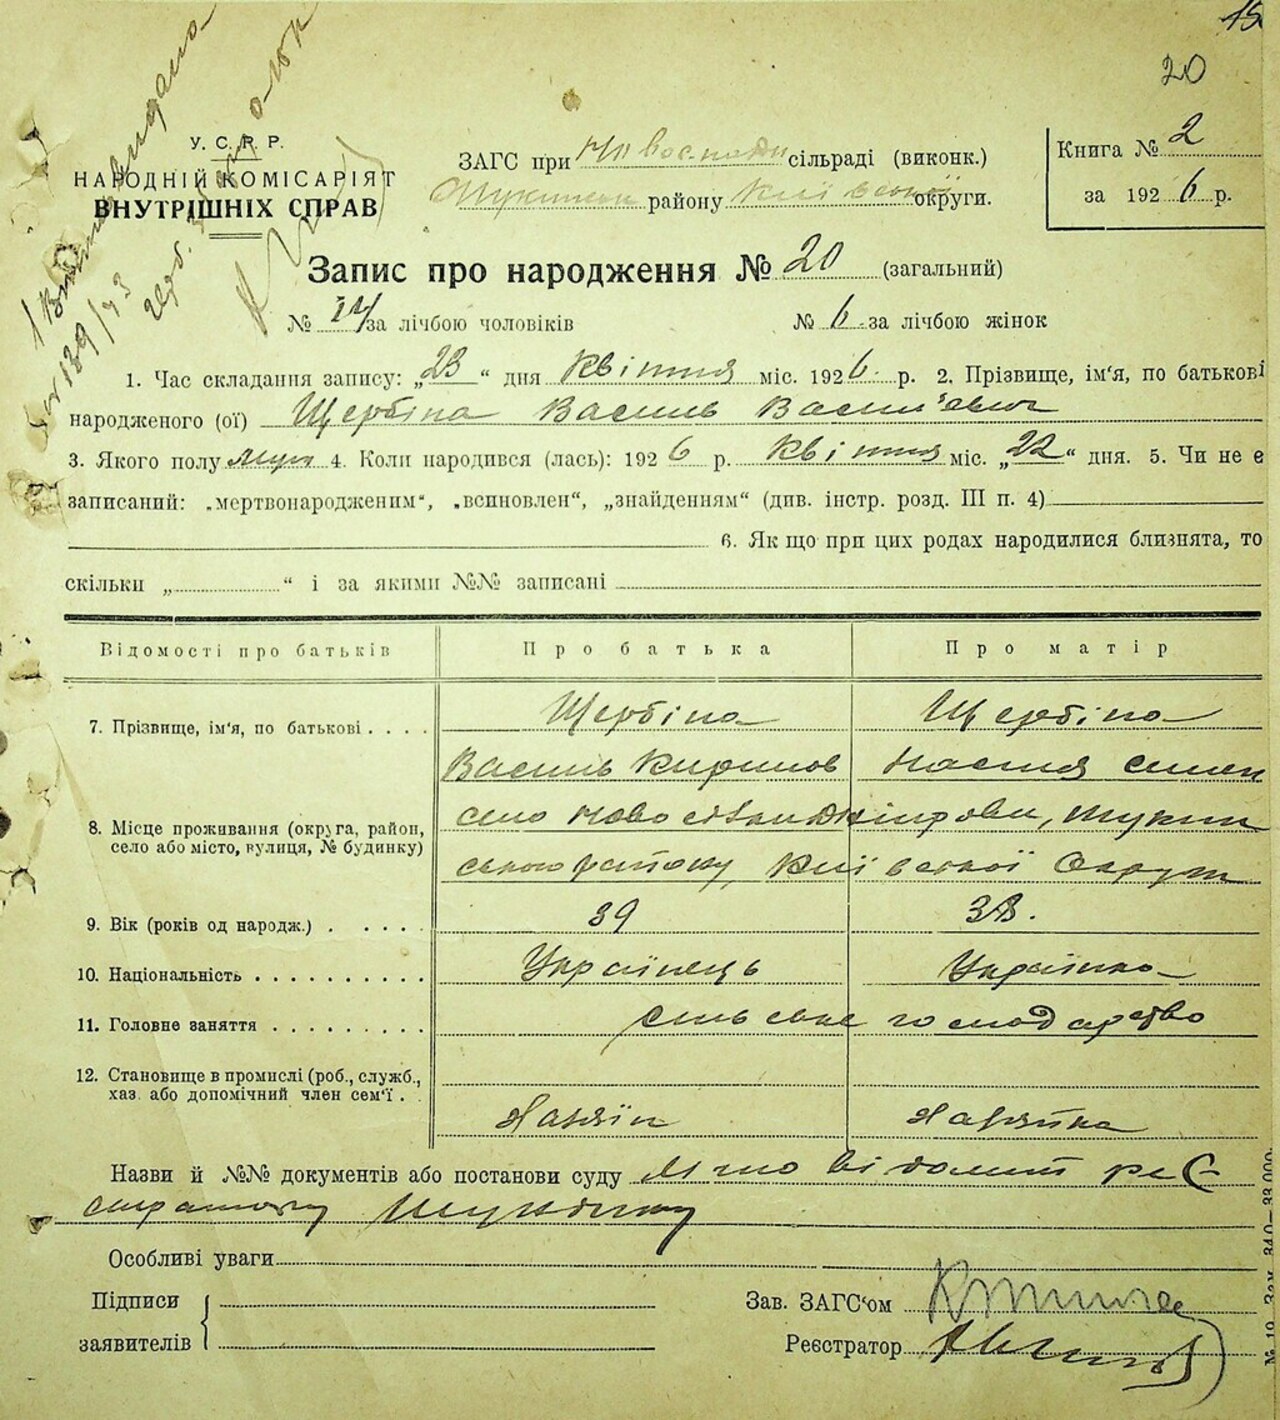 15
20
У. С. Р. Р.
НАРОДНІЙ КОМІСАРІЯТ
ВНУТРІШНІХ СПРАВ
ЗАГС при сільраді (виконк.)
району Київської округи.
Книга № 2
за 1926 р.
Запис про народження № 20 (загальний)
№ 14 за лічбою чоловіків № 6 за лічбою жінок
1. Час складання запису: „23“ дня квітня міс. 1926 р. 2. Прізвище, ім'я, по батькові
народженого (ої) Щербіна Василь Васил'євич
3. Якого полу муж 4. Коли народився (лась): 1926 р. квітня міс. „22“ дня. 5. Чи не є
записаний: „мертвонародженим“, „всиновлен“, „знайденням“ (див. інстр. розд. III п. 4)
6. Як що при цих родах народилися близнята, то
скільки „ “ і за якими №№ записані
Відомості про батьків Про батька Про матір
7. Прізвище, ім'я, по батькові . . . . Щербіна Щербіна
Василь Кирилов Настя Семен
8. Місце проживання (округа, район,
село або місто, вулиця, № будинку)
село
ського району, Київської Округи
9. Вік (років од народж.) . . . . . 39 38.
10. Національність . . . . . . . . . . Українець Українка
11. Головне заняття . . . . . . . . . сільське господарство
12. Становище в промислі (роб., служб.,
хаз. або допомічний член сем'ї . . Хазяїн Хазяйка
Назви й №№ документів або постанови суду Лічно відомий реє-
стратору
Особливі уваги
Підписи
заявителів
Зав. ЗАГС'ом
Реєстратор